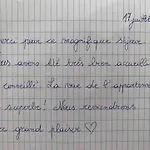 17 juillet
merci pour ce magnifique séjour.
Nous avons été très bien accueillis
conseillé. La vue de l'appartement
superbe! Nous reviendrons
grand plaisir ♡